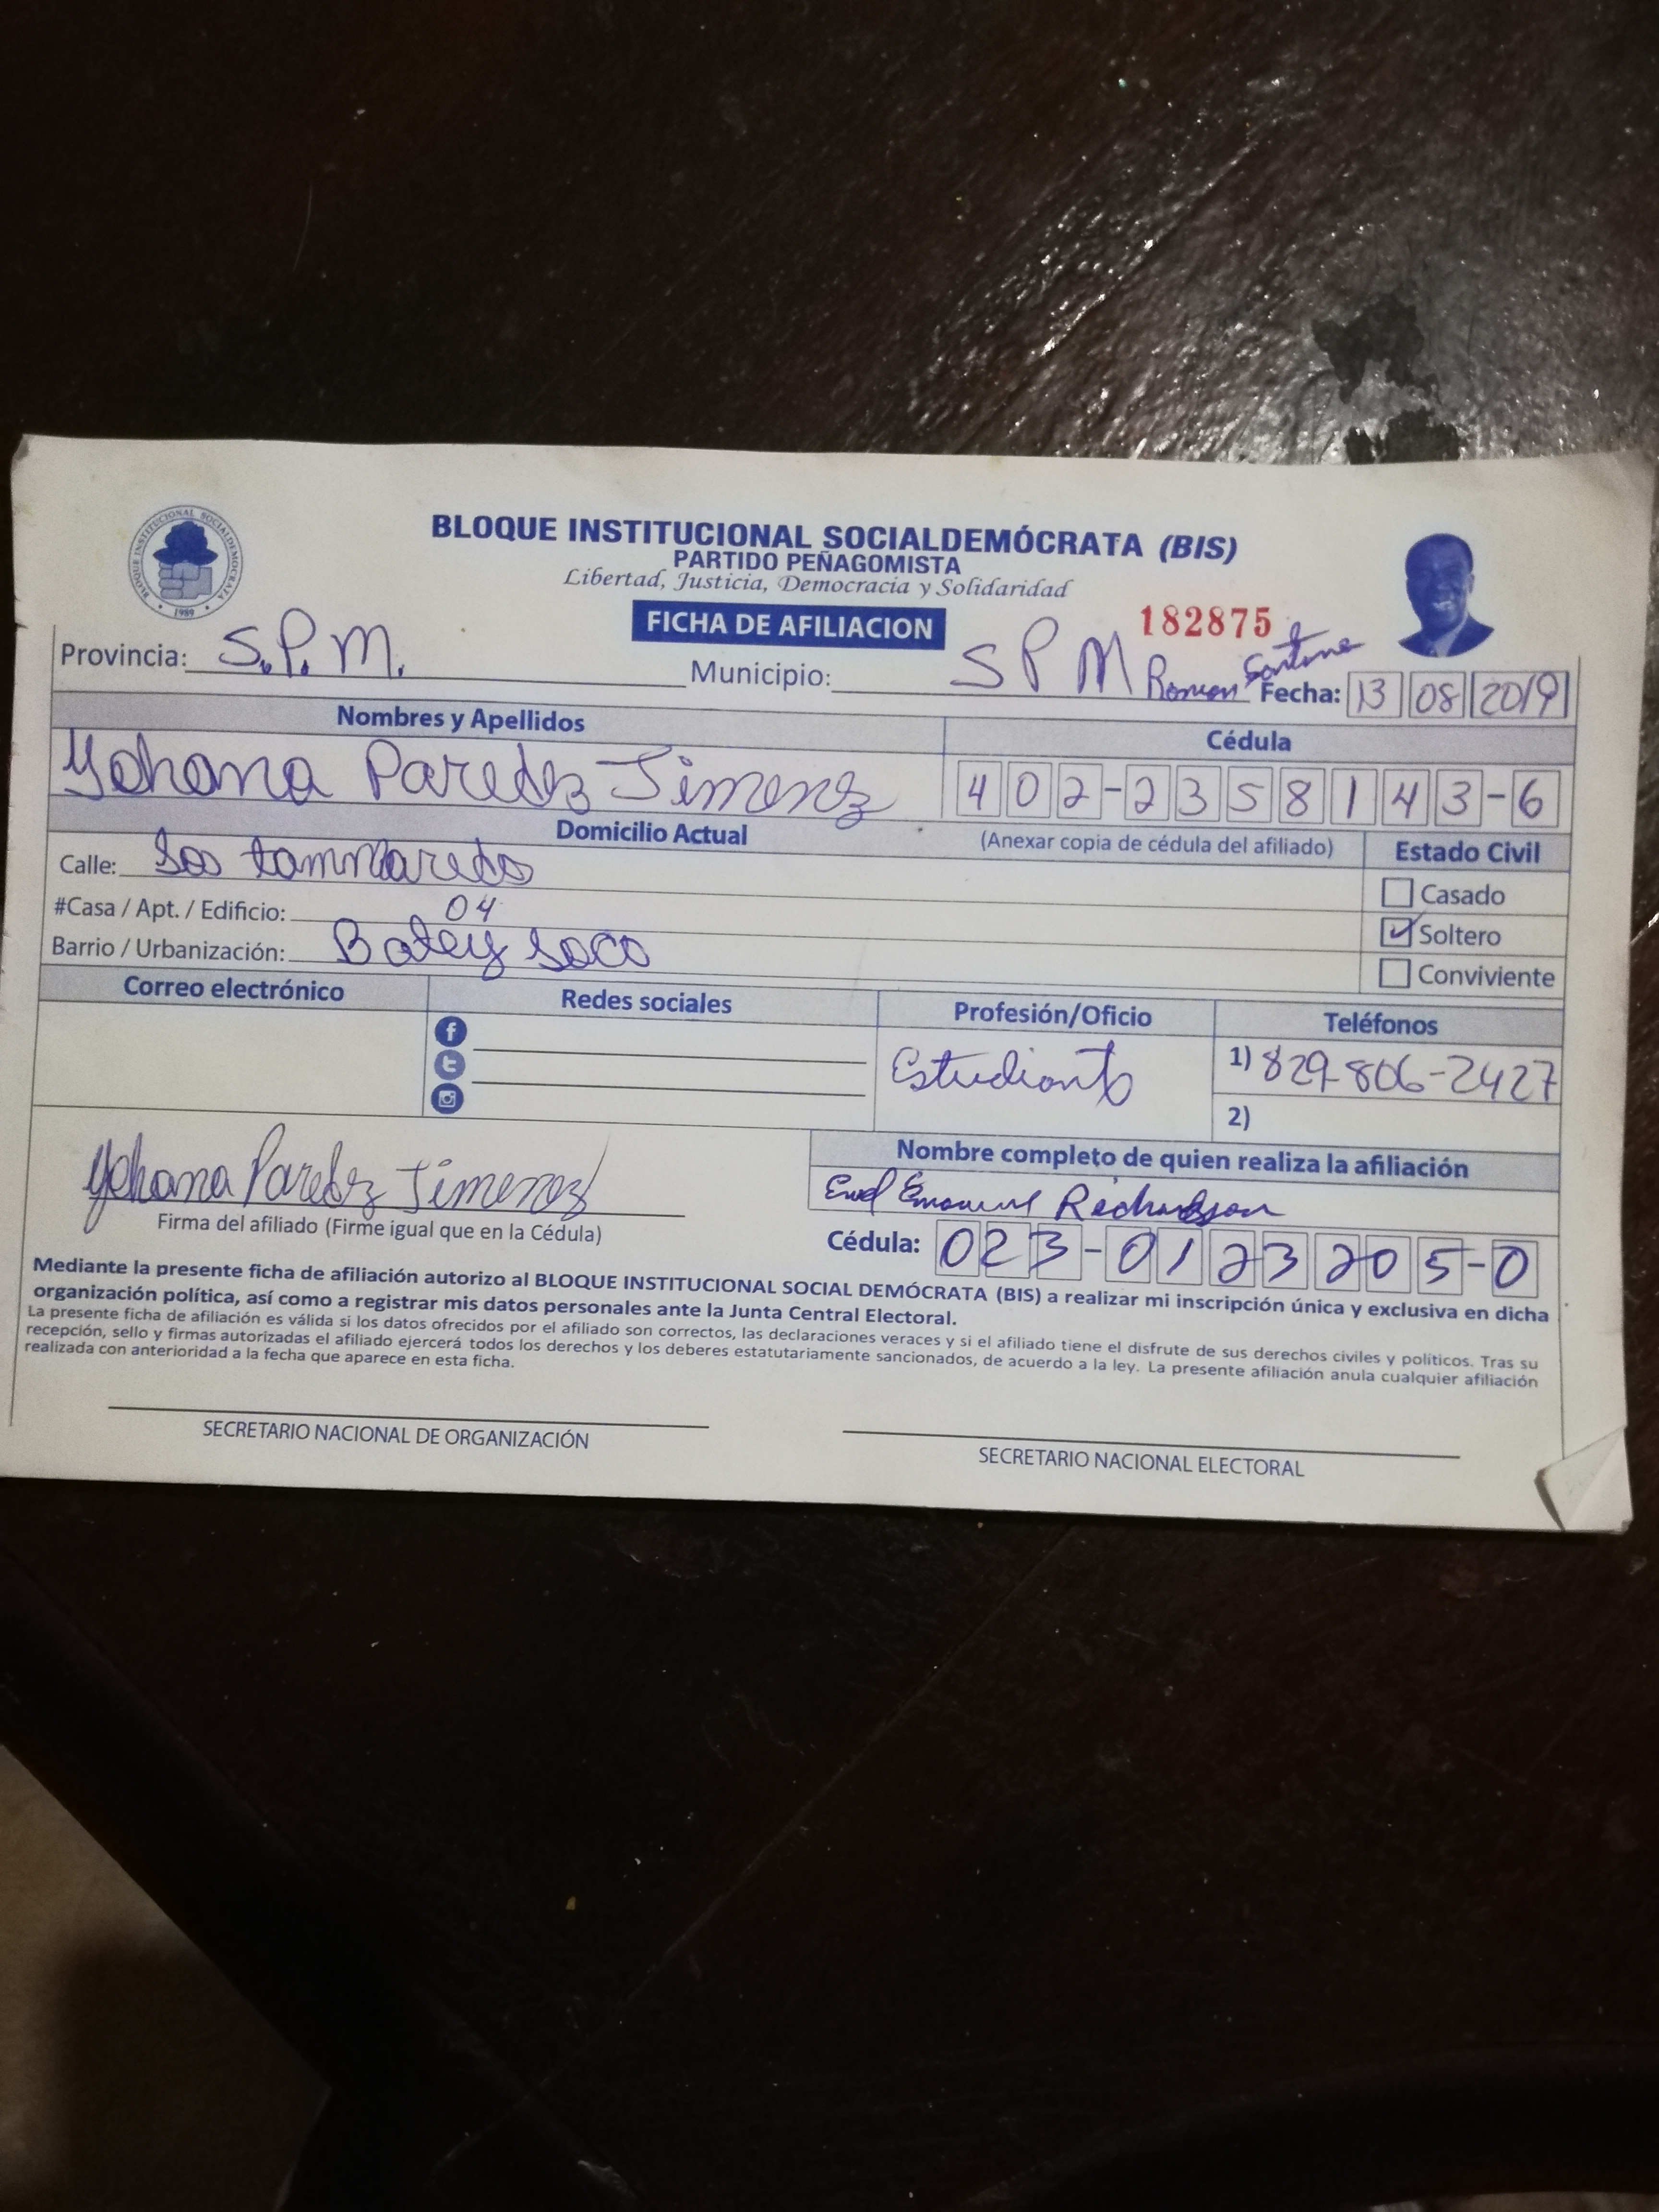 BLOQUE INSTITUCIONAL SOCIALDEMÓCRATA (BIS)
PARTIDO PEÑAGOMISTA
Libertad, Justicia, Democracia y Solidaridad
BLOQUE INSTITUCIONAL SOCIALDEMOCRATA • 1989 •
FICHA DE AFILIACION
182875
Provincia: S.P.M. Municipio: S P M Roman Santana Fecha: 13 08 2019
Nombres y Apellidos Cédula
Yohana Paredez Jimenez 402-2358143-6
Domicilio Actual (Anexar copia de cédula del afiliado) Estado Civil
Calle: Los
Casado
#Casa / Apt. / Edificio: 04
Soltero
Barrio / Urbanización: Batey Soco
Conviviente
Correo electrónico Redes sociales Profesión/Oficio Teléfonos
Estudiante 1) 829-806-2427
2)
Yohana Paredez Jimenez
Firma del afiliado (Firme igual que en la Cédula)
Nombre completo de quien realiza la afiliación
Emanuel Richardson
Cédula: 023-0123205-0
Mediante la presente ficha de afiliación autorizo al BLOQUE INSTITUCIONAL SOCIAL DEMÓCRATA (BIS) a realizar mi inscripción única y exclusiva en dicha
organización política, así como a registrar mis datos personales ante la Junta Central Electoral.
La presente ficha de afiliación es válida si los datos ofrecidos por el afiliado son correctos, las declaraciones veraces y si el afiliado tiene el disfrute de sus derechos civiles y políticos. Tras su
recepción, sello y firmas autorizadas el afiliado ejercerá todos los derechos y los deberes estatutariamente sancionados, de acuerdo a la ley. La presente afiliación anula cualquier afiliación
realizada con anterioridad a la fecha que aparece en esta ficha.
SECRETARIO NACIONAL DE ORGANIZACIÓN
SECRETARIO NACIONAL ELECTORAL